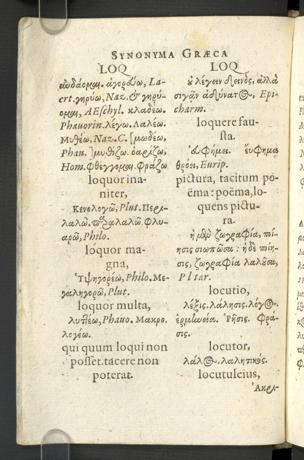 SYNONYMA GRÆCA
LOQ
αὐδάομαι. ἀγοράζω, La-
ert. γηρύω, Naz. & γηρύ-
ομαι, AEschyl. κλαδέω.
Phauorin. λέγω. λαλέω.
Μυθέω. Naz. C. [μωδέω,
Phau.] μυθίζω. ὀαρίζω,
Hom. φθέγγομαι. φράζω
loquor ina-
niter,
Κενολογῶ, Plut. Περι-
λαλῶ. παραλαλῶ. φλυ-
αρῶ, Philo.
loquor ma-
gna,
Ὑψηγορέω, Philo. Με-
γαληγορῶ, Plut.
loquor multa,
Phauo. Μακρο-
λογέω.
qui quum loqui non
posset. tacere non
poterat.
LOQ
ὁ λέγειν δεινὸς, ἀλλὰ
σιγᾶν ἀδύνατος, Epi-
charm.
loquere fau-
sta.
Εὐφήμει. εὔφημα
Eurip.
pictura, tacitum po-
ëma: poëma, lo-
quens pictu-
ra.
ἡ μὲν ζωγραφία, ποί-
ησις σιωπῶσα: ἡ δὲ ποίη-
σις, ζωγραφία λαλοῦσα,
Pltar.
locutio,
λέξις. λάλησις. λόγος.
ἑρμηνεία. ῥῆσις. Φρα-
σις.
locutor,
λάλος. λαλητικός.
locutuleius,
Ἀκρι-